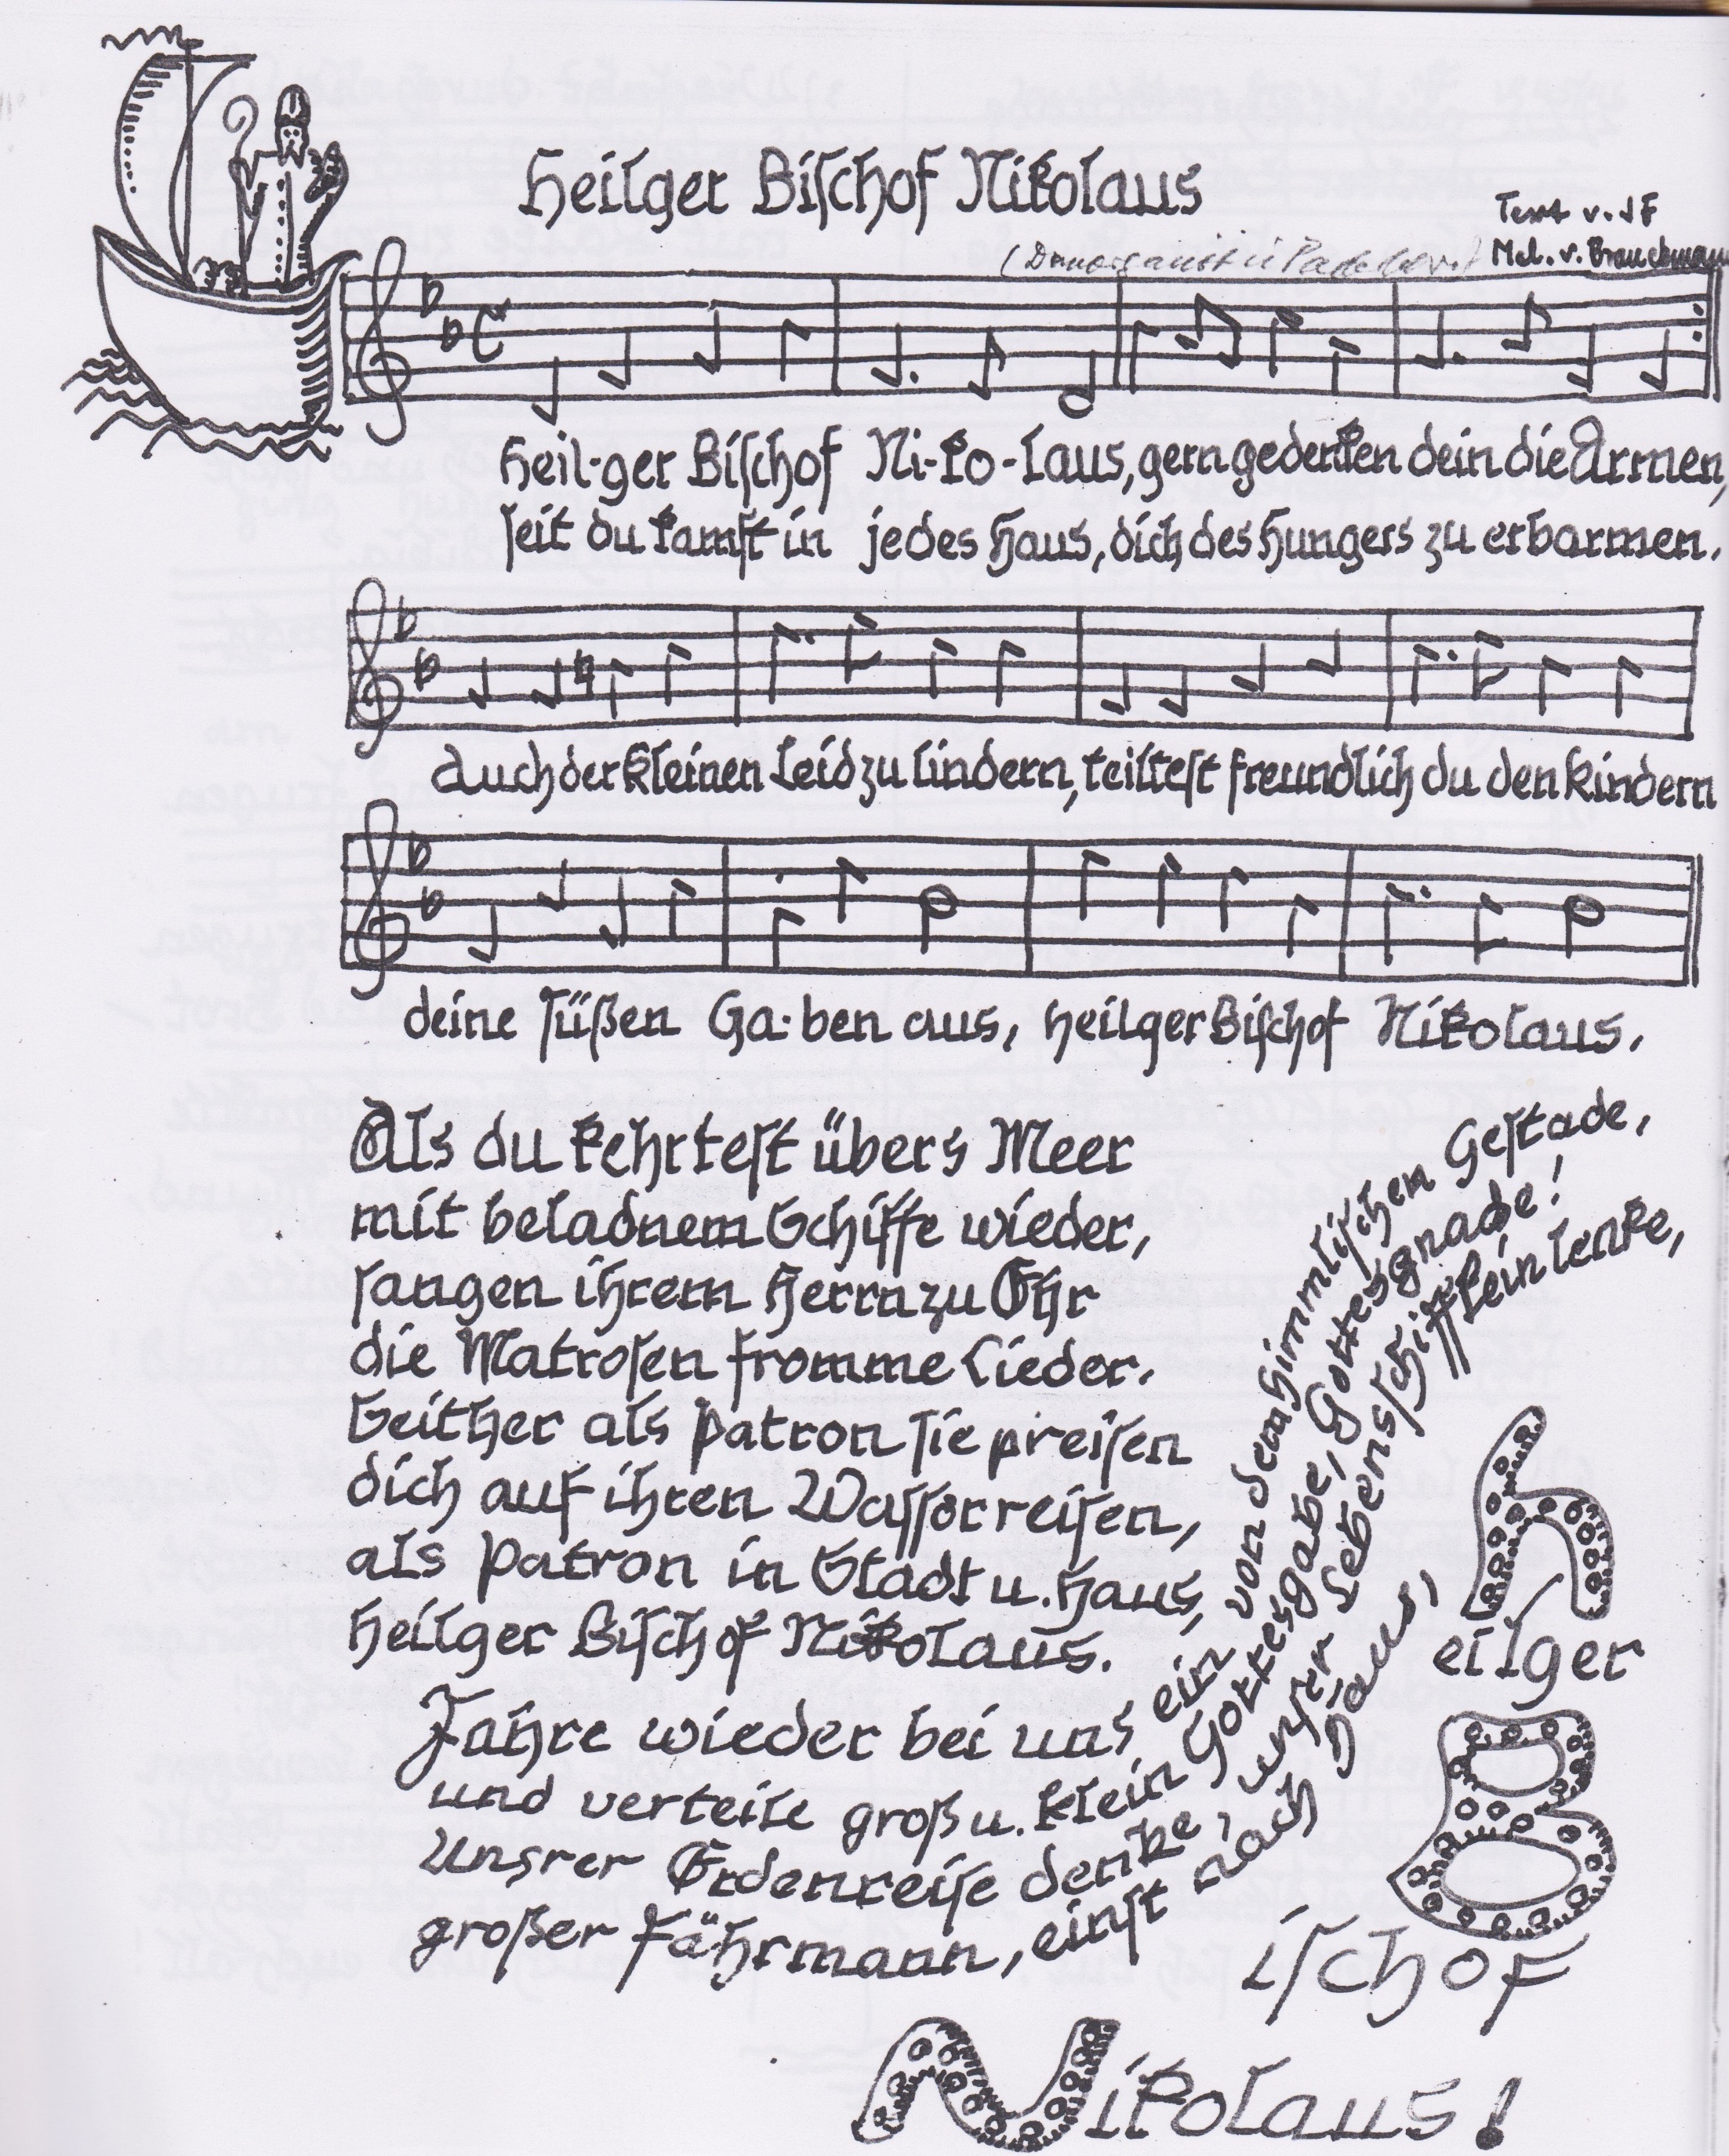 Heilger Bischof Nikolaus
Text v. JF
(Domorganist in Paderborn)
Mel. v. Brauckmann
Heil-ger Bischof Ni-ko-laus, gern gedenken dein die Armen,
seit du kamst in jedes Haus, dich des Hungers zu erbarmen.
Auch der Kleinen Leid zu lindern, teiltest freundlich du den Kindern
deine süßen Ga-ben aus, heilger Bischof Nikolaus.
Als du kehrtest übers Meer
mit beladnem Schiffe wieder,
sangen ihrem Herrn zu Ehr
die Matrosen fromme Lieder.
Seither als Patron sie preisen
dich auf ihren Wasserreisen,
als Patron in Stadt u. Haus,
heilger Bischof Nikolaus.
Jahre wieder bei uns ein von dem himmlischen Gestade,
und verteile groß u. klein Gottesgabe, Gottesgnade!
Unsrer Erdenreise denke, unser Lebensschifflein lenke,
großer Fährmann, einst nach Haus,
heilger
Bischof
Nikolaus!